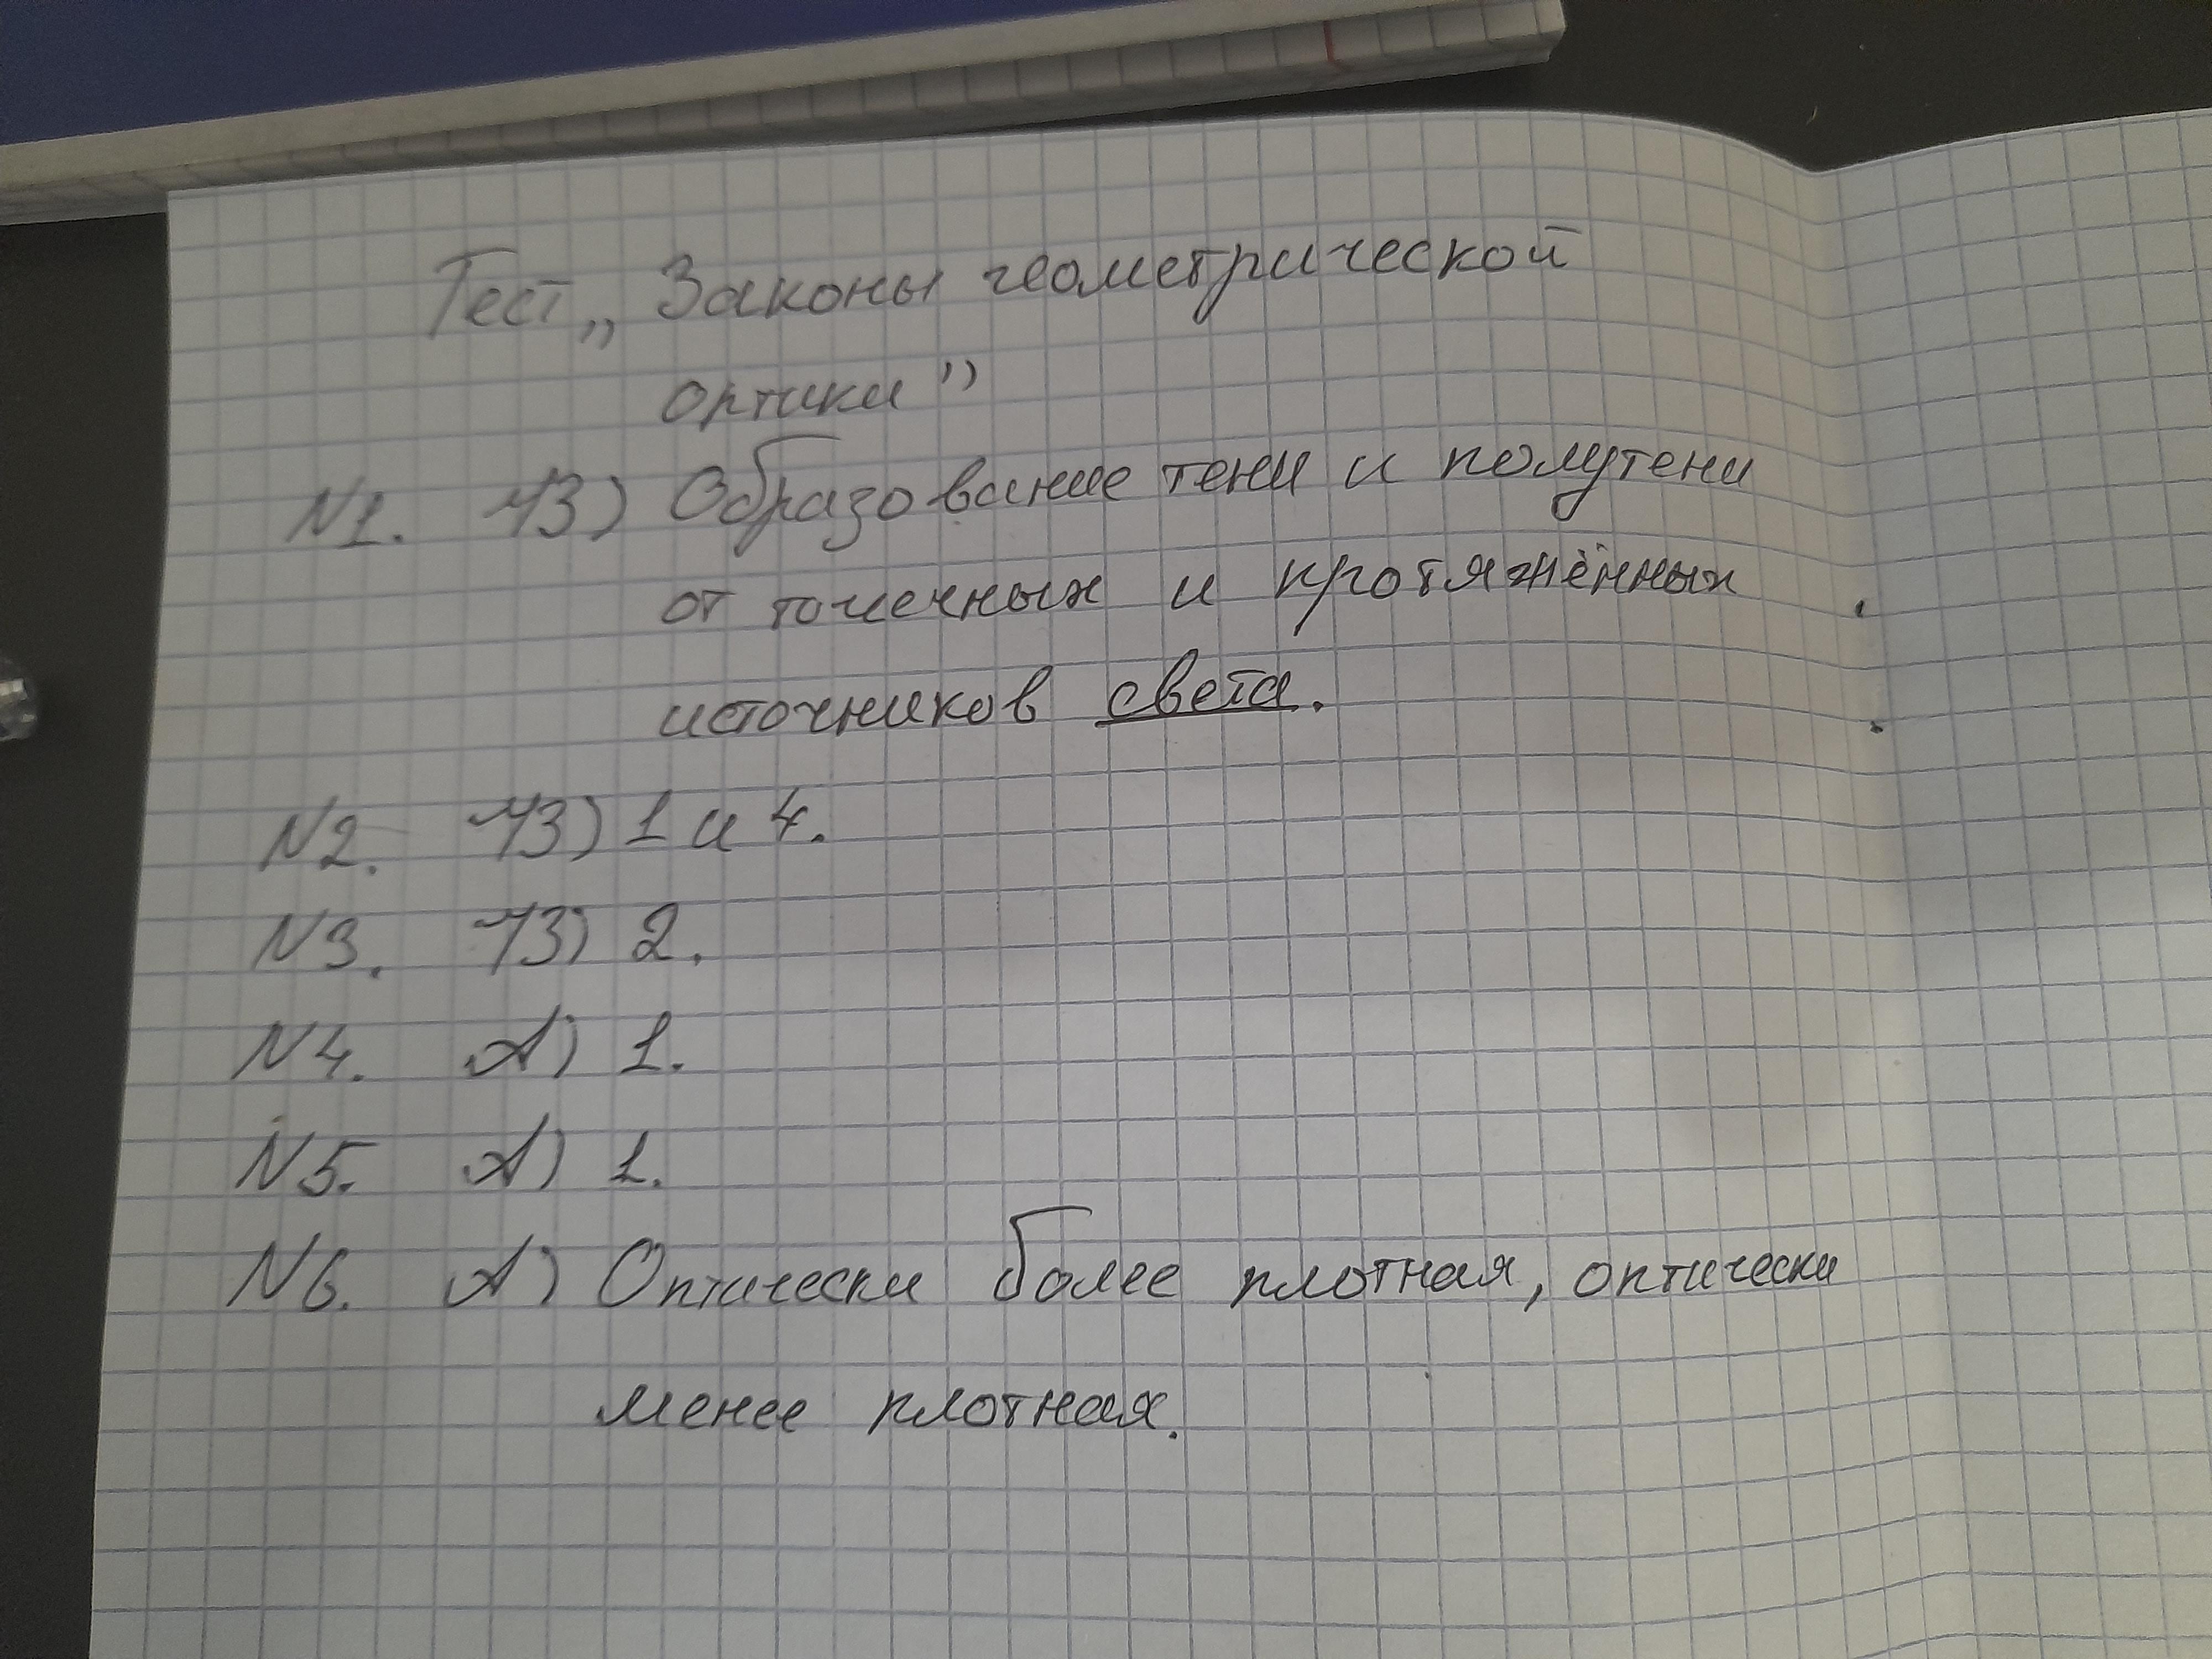 Тест „Законы геометрической
оптики”
N1. ЧЗ) Образование тени и полутени
от точечных и протяжённых
источников света.
N2. ЧЗ) 1 и 4.
N3. ЧЗ) 2.
N4. А) 1.
N5. А) 1.
N6. А) Оптически более плотная, оптически
менее плотная.